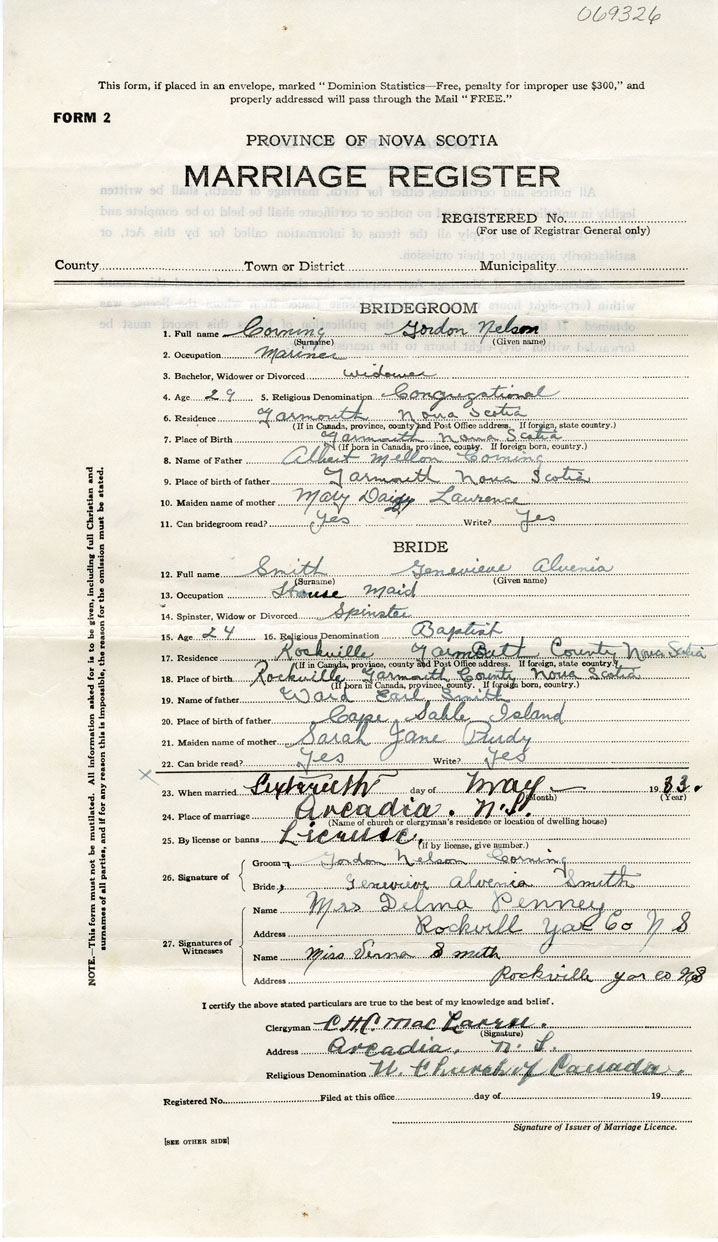 069326
This form, if placed in an envelope, marked “ Dominion Statistics—Free, penalty for improper use $300,” and
properly addressed will pass through the Mail “ FREE.”
FORM 2
PROVINCE OF NOVA SCOTIA
MARRIAGE REGISTER
REGISTERED No.
(For use of Registrar General only)
County Town or District Municipality
BRIDEGROOM
1. Full name Corning Gordon Nelson
(Surname) (Given name)
2. Occupation Mariner
3. Bachelor, Widower or Divorced widower
4. Age 29 5. Religious Denomination Congregational
6. Residence Yarmouth Nova Scotia
(If in Canada, province, county and Post Office address. If foreign, state country.)
7. Place of Birth Yarmouth Nova Scotia
(If born in Canada, province, county. If foreign born, country.)
8. Name of Father Albert Mellon Corning
9. Place of birth of father Yarmouth Nova Scotia
10. Maiden name of mother Mary Daisy Laurence
11. Can bridegroom read? Yes Write? Yes
BRIDE
12. Full name Smith Genevieve Alvenia
(Surname) (Given name)
13. Occupation House Maid
14. Spinster, Widow or Divorced Spinster
15. Age 24 16. Religious Denomination Baptist
17. Residence Rockville Yarmouth County Nova Scotia
(If in Canada, province, county and Post Office address. If foreign, state country.)
18. Place of birth Rockville Yarmouth County Nova Scotia
(If born in Canada, province, county. If foreign born, country.)
19. Name of father Ward Earl Smith
20. Place of birth of father Cape Sable Island
21. Maiden name of mother Sarah Jane Purdy
22. Can bride read? Yes Write? Yes
23. When married day of May 1933.
(Month) (Year)
24. Place of marriage Arcadia. N.S.
(Name of church or clergyman's residence or location of dwelling house)
25. By license or banns License.
(If by license, give number.)
26. Signature of
Groom Gordon Nelson Corning
Bride Genevieve Alvenia Smith
27. Signatures of Witnesses
Name Mrs Delma Penney
Address Rockvill Yar Co N S
Name Miss Verna Smith
Address Rockville yar co NS
I certify the above stated particulars are true to the best of my knowledge and belief.
Clergyman C.H.C. MacLaren.
(Signature)
Address Arcadia. N.S.
Religious Denomination U. Church of Canada.
Registered No. Filed at this office day of 19
Signature of Issuer of Marriage Licence.
[SEE OTHER SIDE]
NOTE.—This form must not be mutilated. All information asked for is to be given, including full Christian and
surnames of all parties, and if for any reason this is impossible, the reason for the omission must be stated.